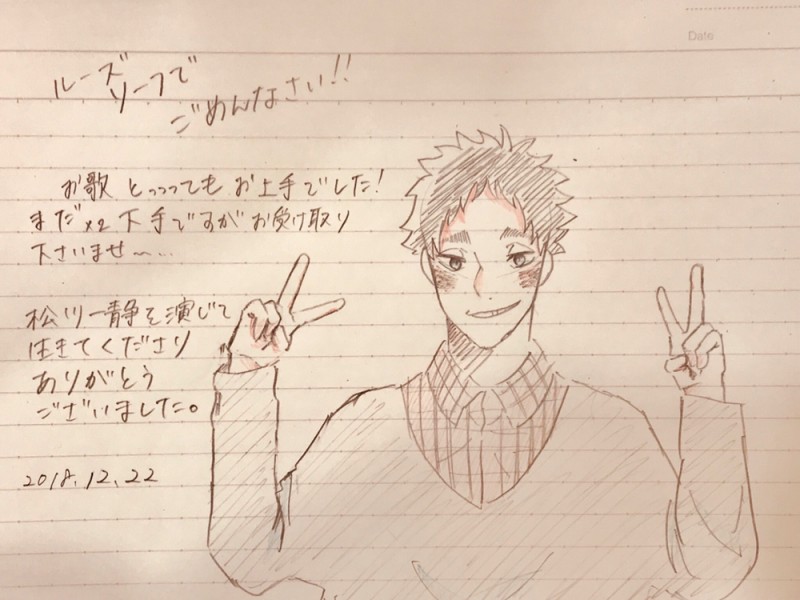 Date
ルーズ
リーフで
ごめんなさい!!
お歌 とっっってもお上手でした!
まだ×2下手ですがお受け取り
下さいませ〜…
松川一静を演じて
生きてくださり
ありがとう
ございました。
2018.12.22